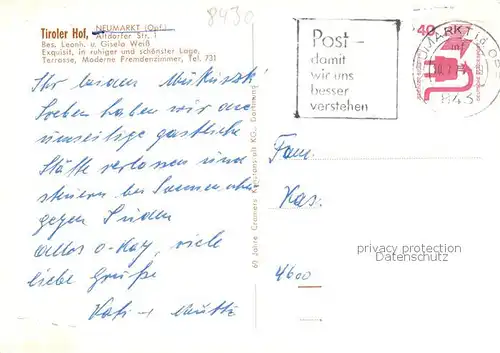 8430
Tiroler Hof, NEUMARKT (Opf.)
Altdorfer Str. 1
Bes. Leonh. u. Gisela Weiß
Exquisit, in ruhiger und schönster Lage,
Terrasse, Moderne Fremdenzimmer, Tel. 731
Ihr beiden
Soeben haben wir die
gastliche
Stätte verlassen und
steuern bei Sonnenschein
gegen Süden
alles o-kay, viele
liebe Grüße
Vati u. Mutti
60 Jahre Cramers Kunstanstalt KG., Dortmund
Post –
damit
wir uns
besser
verstehen
40
843
Fam.
Kas.
privacy protection
Datenschutz
4600